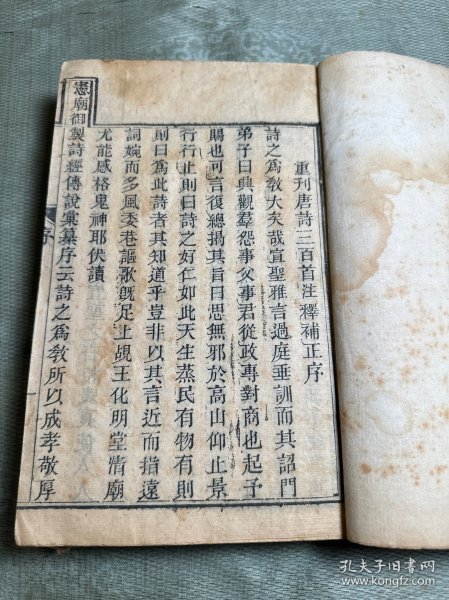 重刊唐詩三百首注釋補正序
詩之爲教大矣哉宣聖雅言過庭垂訓而其詔門
弟子曰興觀羣怨事父事君從政專對商也起予
賜也可言復總揭其旨曰思無邪於高山仰止景
行行止則曰詩之好仁如此天生蒸民有物有則
則曰爲此詩者其知道乎豈非以其言近而指遠
詞婉而多風委巷謳歌旣足上覘王化明堂淸廟
尤能感格鬼神耶伏讀
憲廟御製詩經傳說彙纂序云詩之爲教所以成孝敬厚
序
孔夫子旧书网
www.kongfz.com